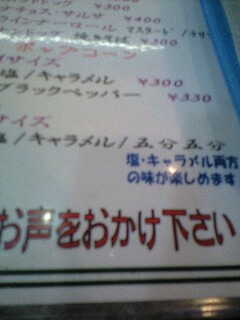 ットドッグ ¥300
ナチョス・サルサ ¥400
ウインナーロール マスタード/チリ
¥300
ポップコーン
サイズ
塩/キャラメル ¥300
ブラックペッパー ¥330
サイズ
塩/キャラメル/五分五分
塩・キャラメル両方
の味が楽しめます
お声をおかけ下さい